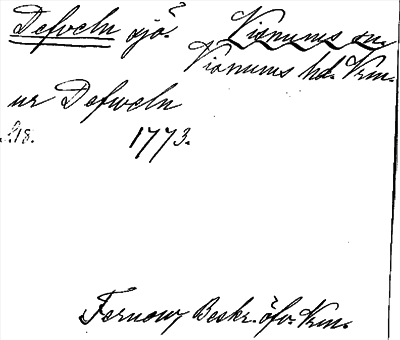 Defveln sjö. Visnums sn.
Visnums hd. Vrm.
ur Defweln
s. 18. 1773.
Fernow, Beskr. öfv. Vrm.